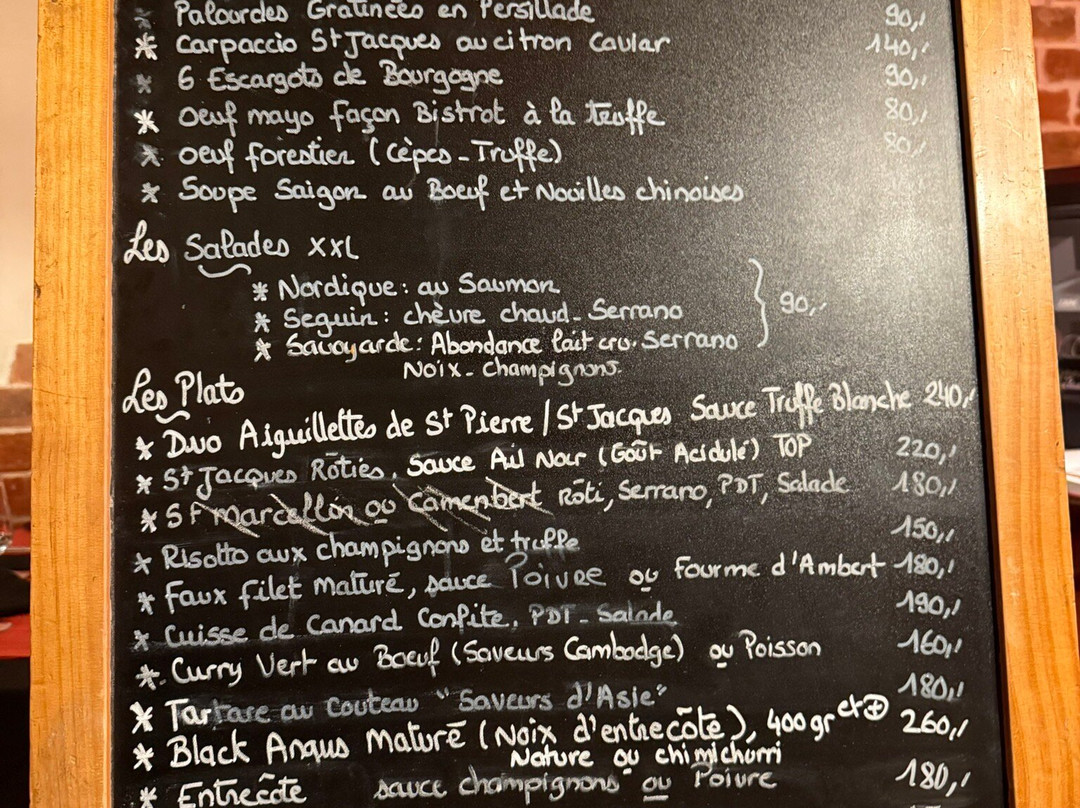 * Palourdes Gratinées en Persillade 90,-
* Carpaccio St Jacques au citron Caviar 140,-
* 6 Escargots de Bourgogne 90,-
* Oeuf mayo façon Bistrot à la truffe 80,-
* oeuf forestier (Cèpes - Truffe) 80,-
* Soupe Saigon au Boeuf et Nouilles chinoises
Les Salades XXL
* Nordique: au Saumon
* Seguin: chèvre chaud - Serrano 90,-
* Savoyarde: Abondance lait cru. Serrano
Noix - Champignons.
Les Plats
* Duo Aiguillettes de St Pierre / St Jacques Sauce Truffe Blanche 240,-
* St Jacques Rôties, Sauce Ail Noir (Goût Acidulé) TOP 220,-
* St Marcellin ou Camembert Rôti, Serrano, PDT, Salade 180,-
* Risotto aux champignons et truffe 150,-
* Faux filet Maturé, sauce Poivre ou Fourme d'Ambert 180,-
* Cuisse de Canard Confite, PDT - Salade 190,-
* Curry Vert au Boeuf (Saveurs Cambodge) ou Poisson 160,-
* Tartare au Couteau "Saveurs d'Asie" 180,-
* Black Angus Maturé (Noix d'entrecôte), 400gr et ⊕ 260,-
Nature ou chimichurri
* Entrecôte sauce champignons ou Poivre 180,-